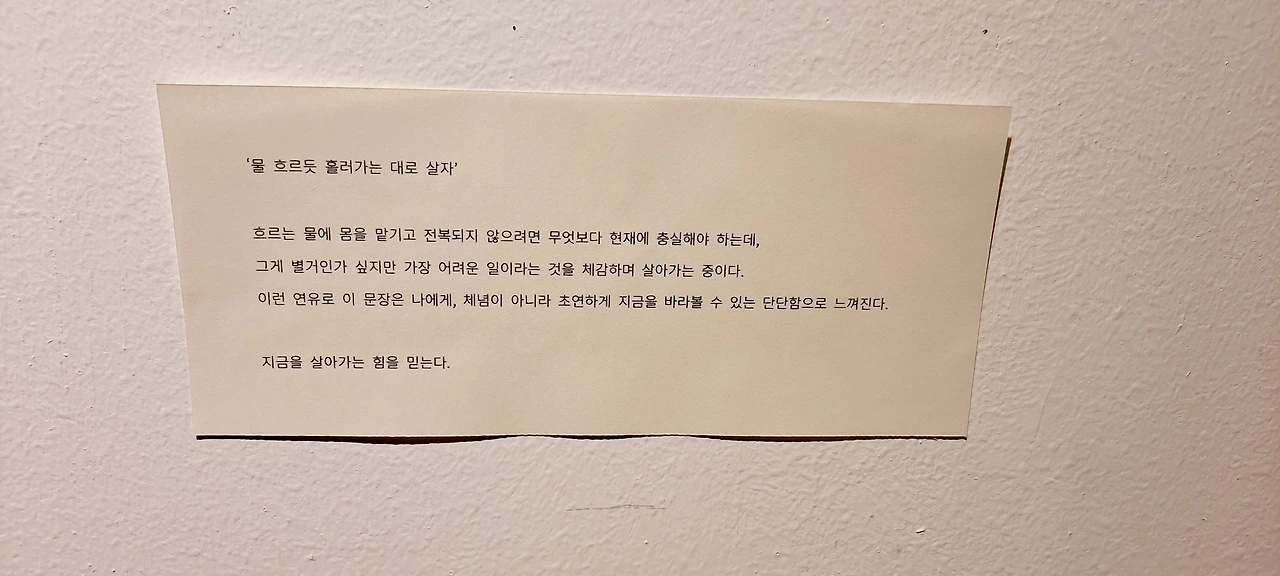 ‘물 흐르듯 흘러가는 대로 살자’
흐르는 물에 몸을 맡기고 전복되지 않으려면 무엇보다 현재에 충실해야 하는데,
그게 별거인가 싶지만 가장 어려운 일이라는 것을 체감하며 살아가는 중이다.
이런 연유로 이 문장은 나에게, 체념이 아니라 초연하게 지금을 바라볼 수 있는 단단함으로 느껴진다.
지금을 살아가는 힘을 믿는다.